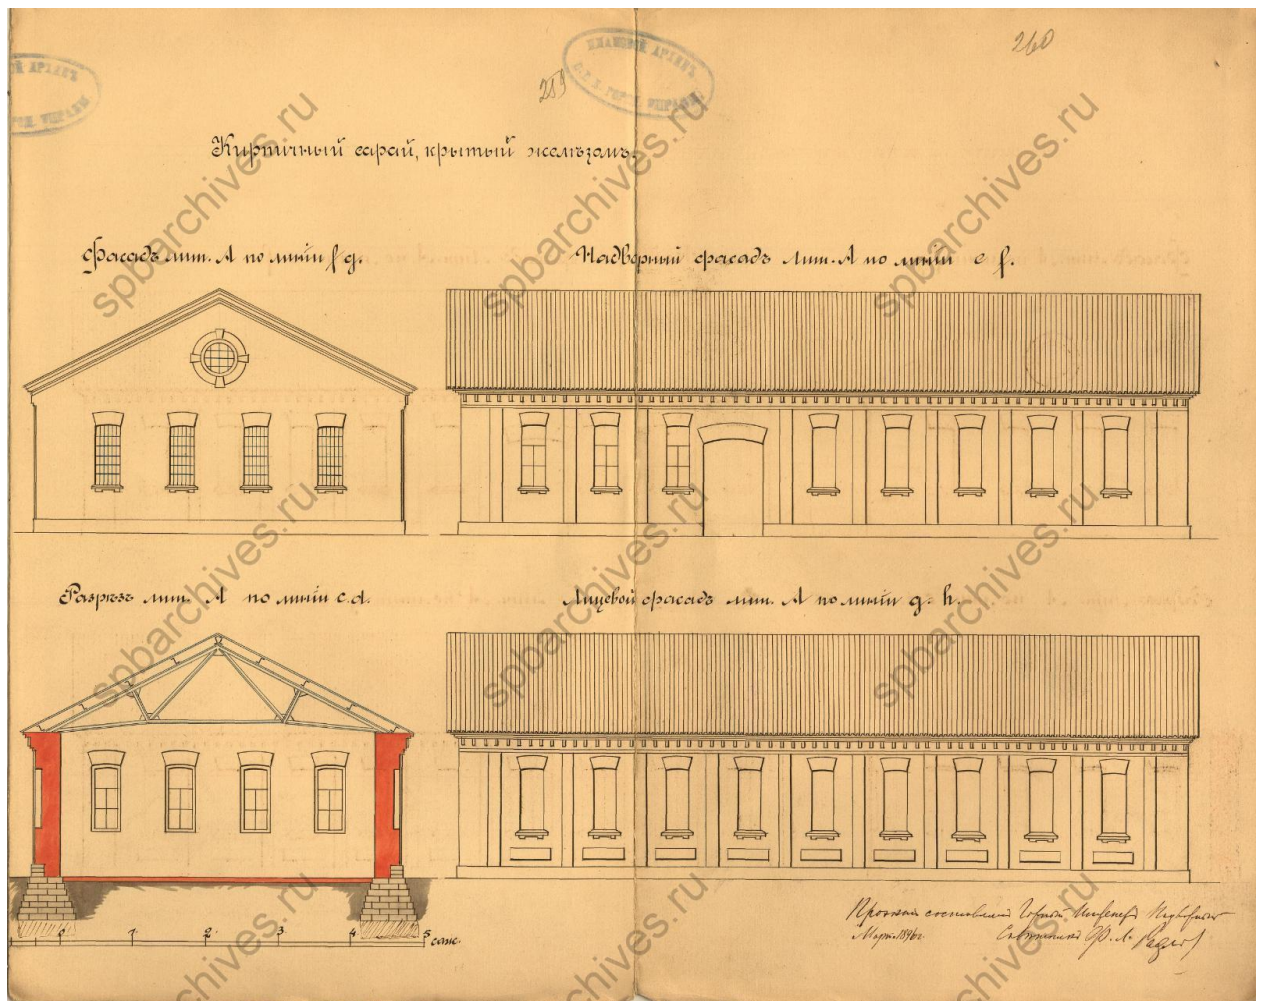 260
ПЛАНОВОЙ АРХИВЪ
Кирпичный сарай, крытый желѣзомъ.
Фасадъ лит. А по линіи f g.
Надворный фасадъ лит. А по линіи e f.
Разрѣзъ лит. А по линіи c. d.
Лицевой фасадъ лит. А по линіи g. h.
0 1 2 3 4 5 саж.
Проэктъ составилъ Горный Инженеръ
Мартъ 1896 г.
spbarchives.ru